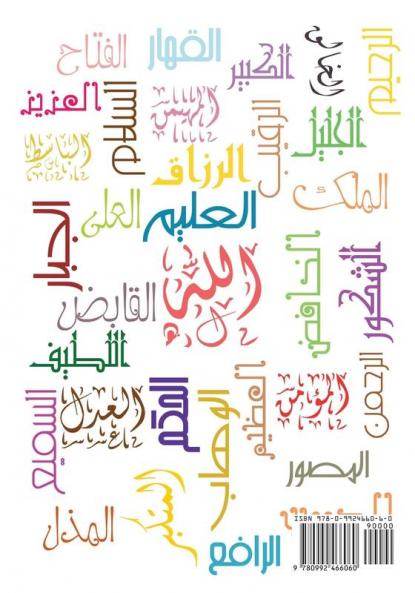 الرحيم
الخالق
القهار
الفتاح
الكبير
العزيز
السلام
المهيمن
الرقيب
الجليل
الباسط
الرزاق
الملك
العليم
العلي
الجبار
الخافض
الشكور
الله
القابض
اللطيف
الرحمن
المؤمن
العظيم
الوهاب
العدل
السميع
المصور
المتكبر
المذل
الرافع
ISBN 978-0-9924660-6-0
90000
9 780992 466060